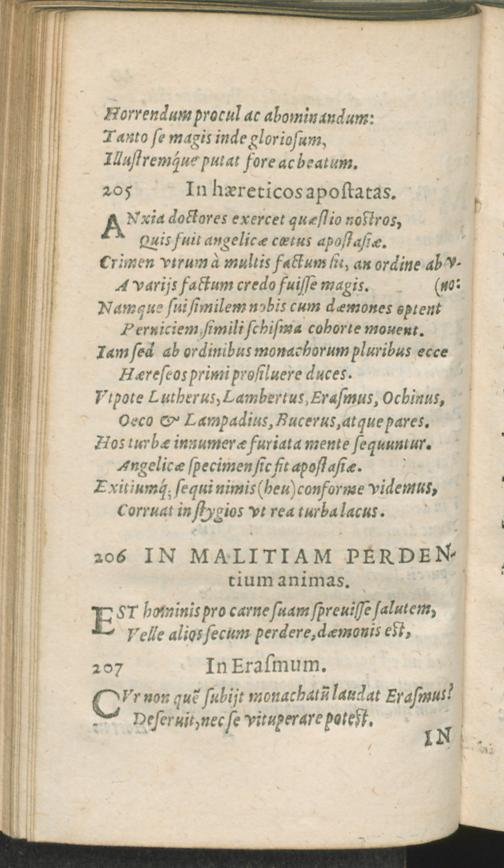 Horrendum procul ac abominandum:
Tanto ſe magis inde glorioſum,
Illuſtremq́ue putat fore ac beatum.
205 In hæreticos apoſtatas.
ANxia doctores exercet quæſtio noſtros,
Quis fuit angelicæ cœtus apoſtaſiæ.
Crimen vtrum à multis factum ſit, an ordine ab v-
A varijs factum credo fuiſſe magis. (no:
Namque ſui ſimilem nobis cum dæmones optent
Perniciem, ſimili ſchiſma cohorte mouent.
Iam ſed ab ordinibus monachorum pluribus ecce
Hæreſeos primi proſiluere duces.
Vtpote Lutherus, Lambertus, Eraſmus, Ochinus,
Oeco & Lampadius, Bucerus, atque pares.
Hos turbæ innumeræ furiata mente ſequuntur.
Angelicæ ſpecimen ſic fit apoſtaſiæ.
Exitiumq́; ſequi nimis (heu) conforme videmus,
Corruat in ſtygios vt rea turba lacus.
206 IN MALITIAM PERDEN-
tium animas.
EST hominis pro carne ſuam ſpreuiſſe ſalutem,
Velle alios ſecum perdere, dæmonis eſt,
207 In Eraſmum.
CVr non quẽ ſubijt monachatũ laudat Eraſmus?
Deſeruit, nec ſe vituperare poteſt.
IN